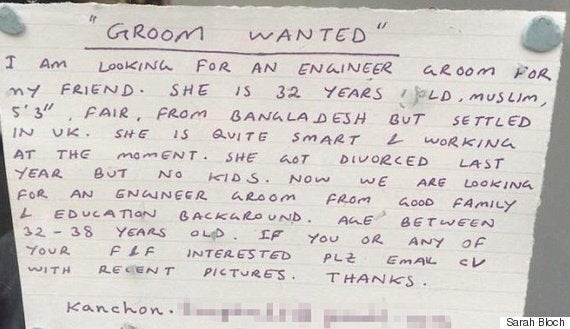 "GROOM WANTED"
I AM LOOKING FOR AN ENGINEER GROOM FOR
MY FRIEND. SHE IS 32 YEARS OLD, MUSLIM,
5'3", FAIR, FROM BANGLADESH BUT SETTLED
IN UK. SHE IS QUITE SMART & WORKING
AT THE MOMENT. SHE GOT DIVORCED LAST
YEAR BUT NO KIDS. NOW WE ARE LOOKING
FOR AN ENGINEER GROOM FROM GOOD FAMILY
& EDUCATION BACKGROUND. AGE BETWEEN
32-38 YEARS OLD. IF YOU OR ANY OF
YOUR F&F INTERESTED PLZ EMAIL CV
WITH RECENT PICTURES. THANKS.
Kanchon.
Sarah Bloch